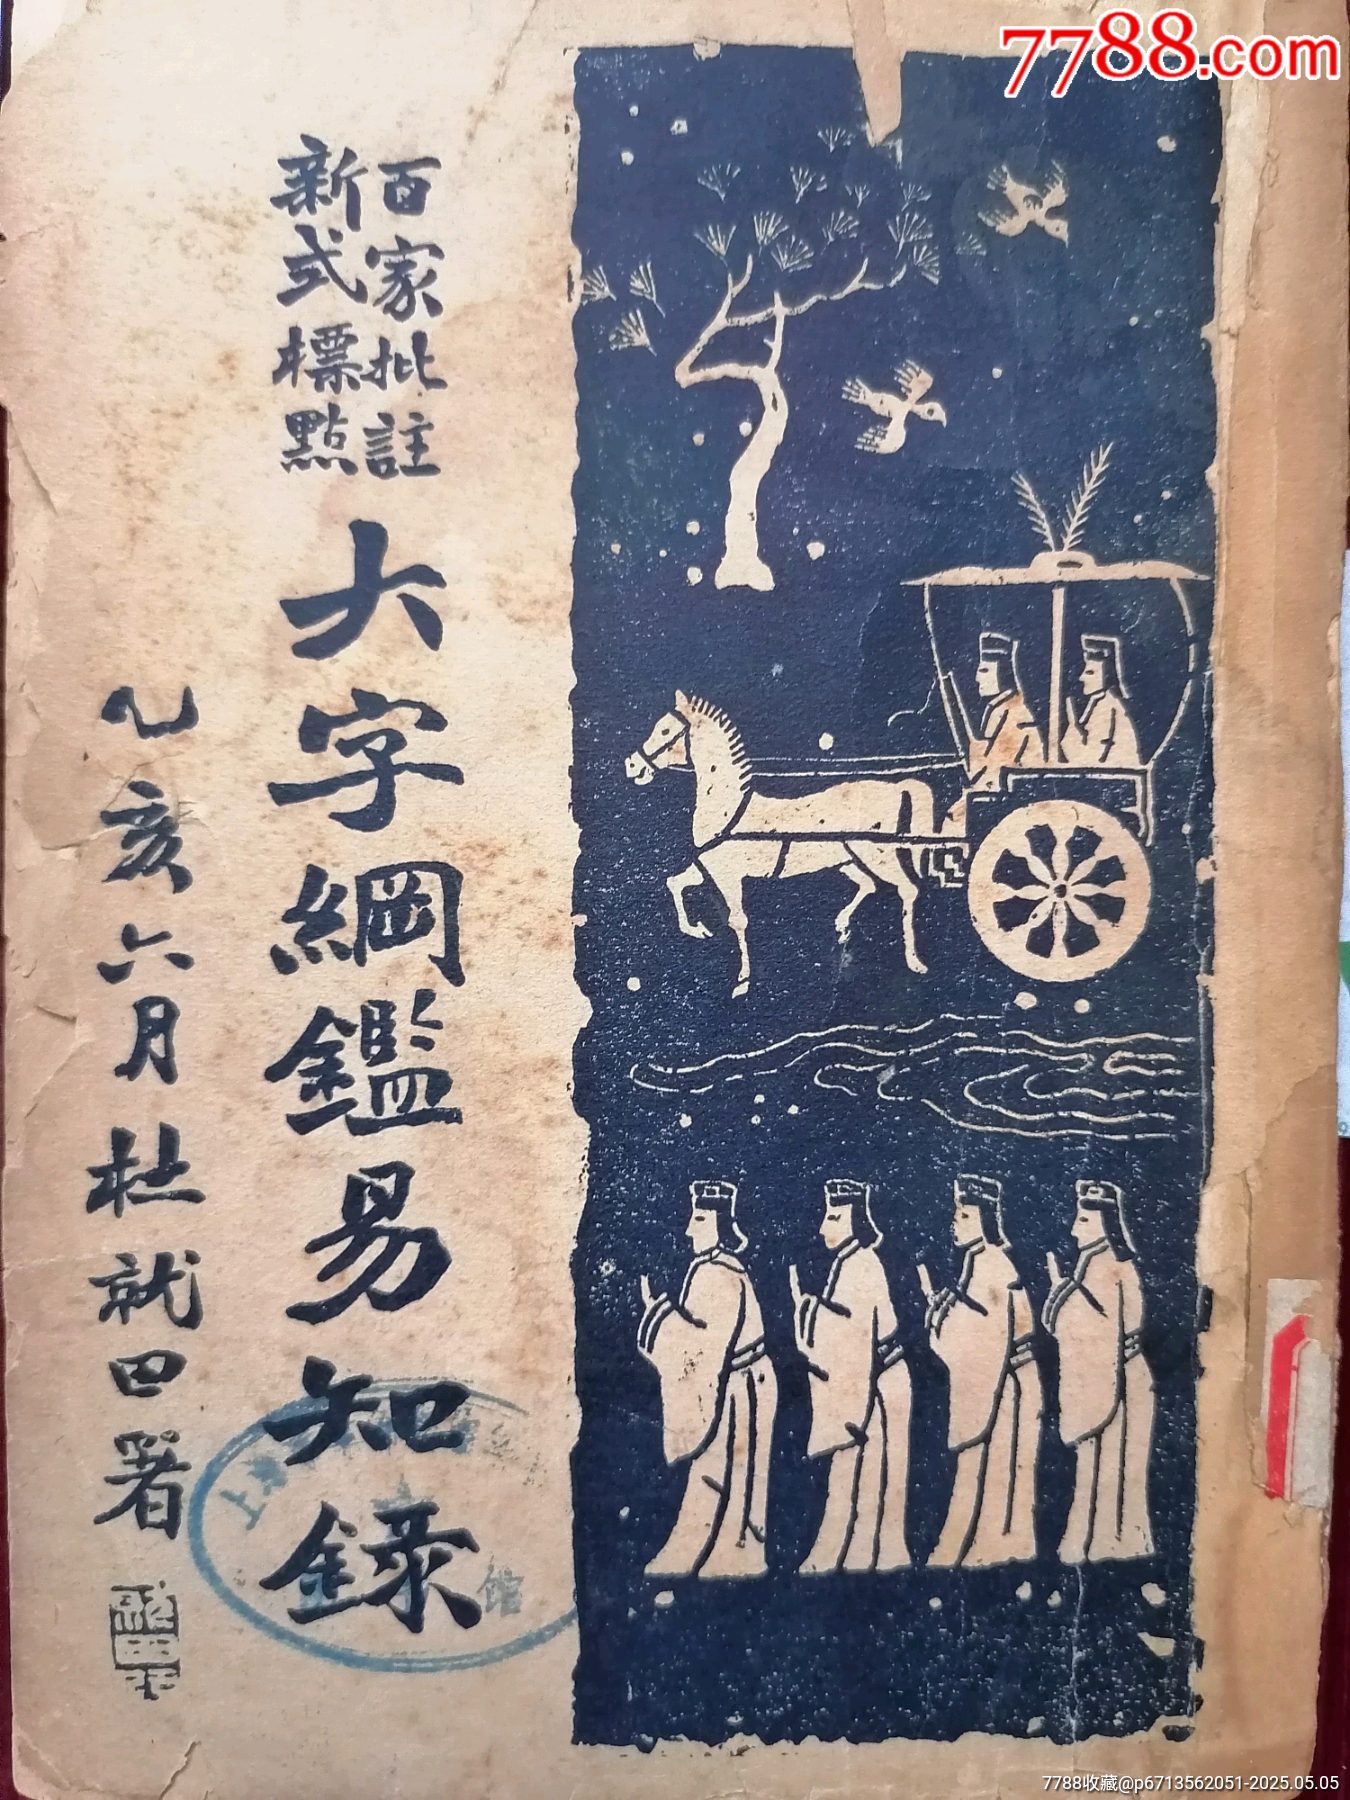 7788.com
百家批註
新式標點
大字綱鑑易知錄
乙亥六月杜就田署
上海
館
7788收藏@p6713562051-2025.05.05